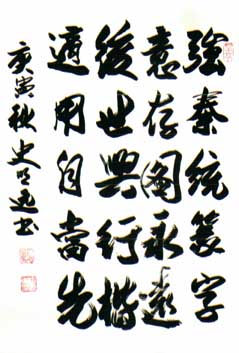 強秦統篆字
意存圖永遠
後世興行楷
適用自當先
庚寅秋史明迅書